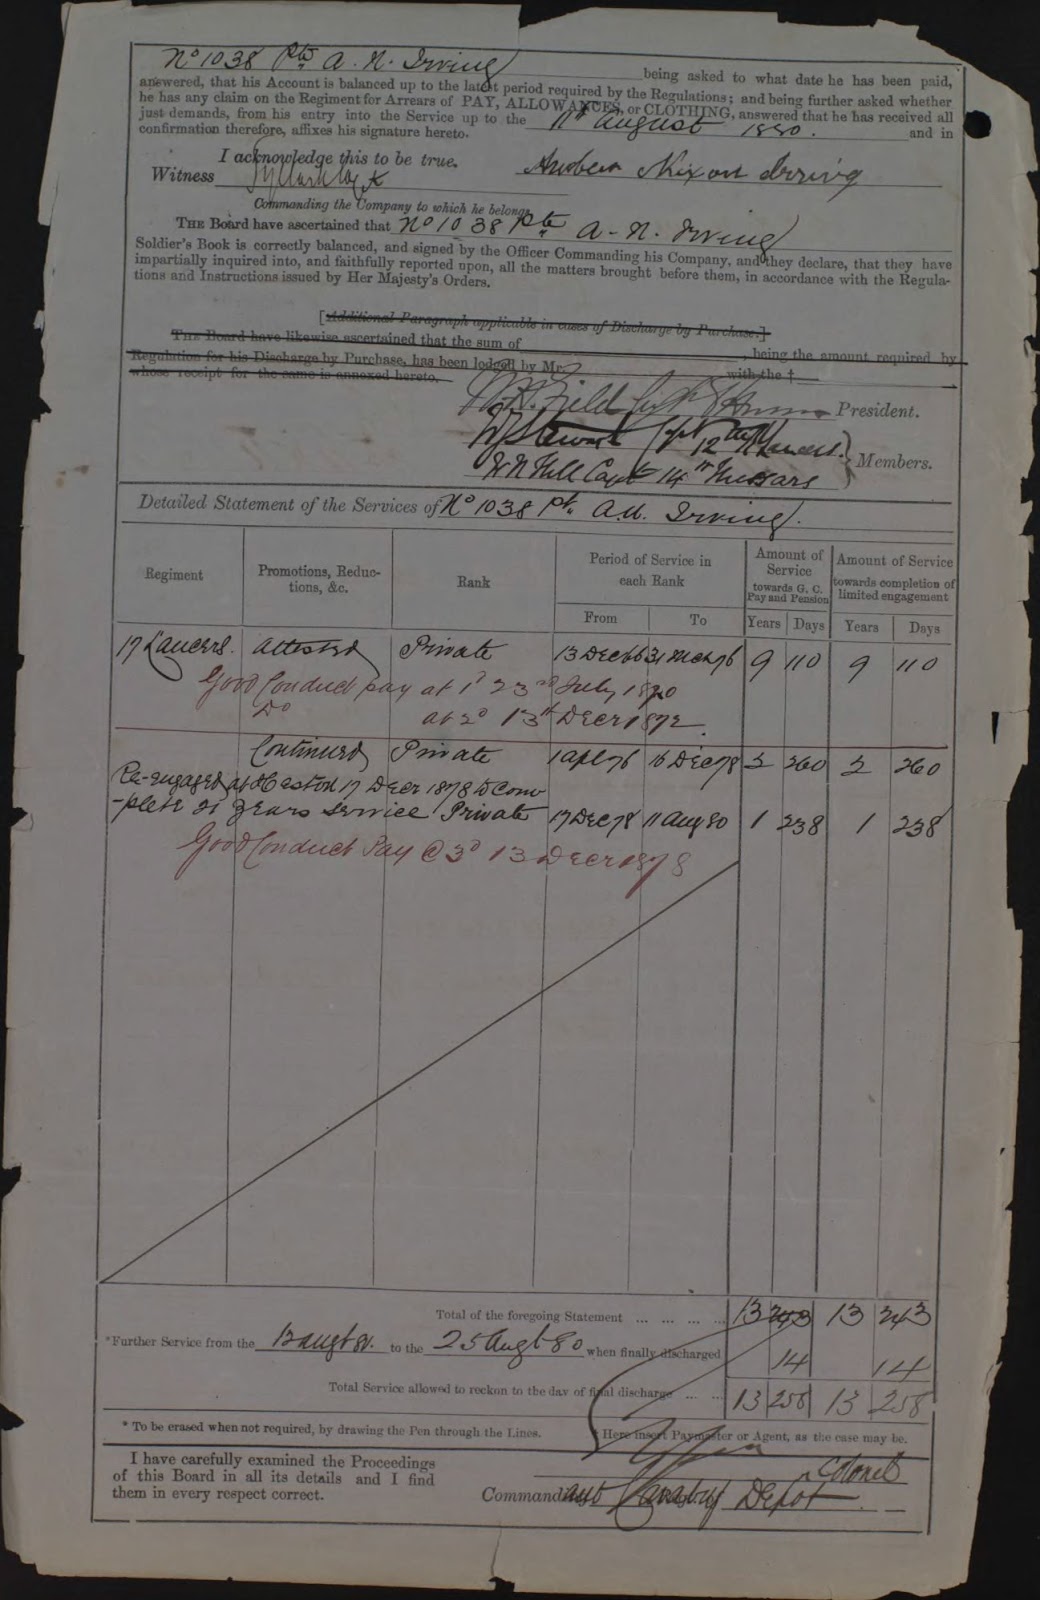 No 1038 Pte A. N. Irving being asked to what date he has been paid,
answered, that his Account is balanced up to the latest period required by the Regulations; and being further asked whether
he has any claim on the Regiment for Arrears of PAY, ALLOWANCES, or CLOTHING, answered that he has received all
just demands, from his entry into the Service up to the 11th August 1880. and in
confirmation therefore, affixes his signature hereto.
I acknowledge this to be true.
Witness Nixon Irving
Commanding the Company to which he belongs
THE Board have ascertained that No 1038 Pte A. N. Irving
Soldier's Book is correctly balanced, and signed by the Officer Commanding his Company, and they declare, that they have
impartially inquired into, and faithfully reported upon, all the matters brought before them, in accordance with the Regula-
tions and Instructions issued by Her Majesty's Orders.
[Additional Paragraph applicable in cases of Discharge by Purchase.]
THE Board have likewise ascertained that the sum of , being the amount required by
Regulation for his Discharge by Purchase, has been lodged by Mr. with the †
whose receipt for the same is annexed hereto.
Field President.
Stewart Capt 12th Lancers.
Members.
W N Hill Capt 14th Hussars
Detailed Statement of the Services of No 1038 Pte A.N. Irving.
Regiment Promotions, Reduc-tions, &c. Rank Period of Service in each Rank Amount of Service towards G. C. Pay and Pension Amount of Service towards completion of limited engagement
From To Years Days Years Days
17 Lancers. Attested Private 13 Dec 66 31 Mch 76 9 110 9 110
Good Conduct pay at 1d 23rd July 1870
Do at 2d 13th Decr 1872
Continued Private 1 Apl 76 16 Dec 78 2 260 2 260
Re-engaged at 17 Decr 1878 to com-
-plete 21 years service Private 17 Dec 78 11 Aug 80 1 238 1 238
Good Conduct Pay @ 3d 13 Decr 1878
Total of the foregoing Statement ... ... ... ... 13 243 13 243
*Further Service from the 12 Augt 80. to the 25 Augt 80 when finally discharged 14 14
Total Service allowed to reckon to the day of final discharge ... ... 13 256 13 258
* To be erased when not required, by drawing the Pen through the Lines. † Here insert Paymaster or Agent, as the case may be.
I have carefully examined the Proceedings
of this Board in all its details and I find
them in every respect correct.
Colonel
Commanding Cavalry Depot